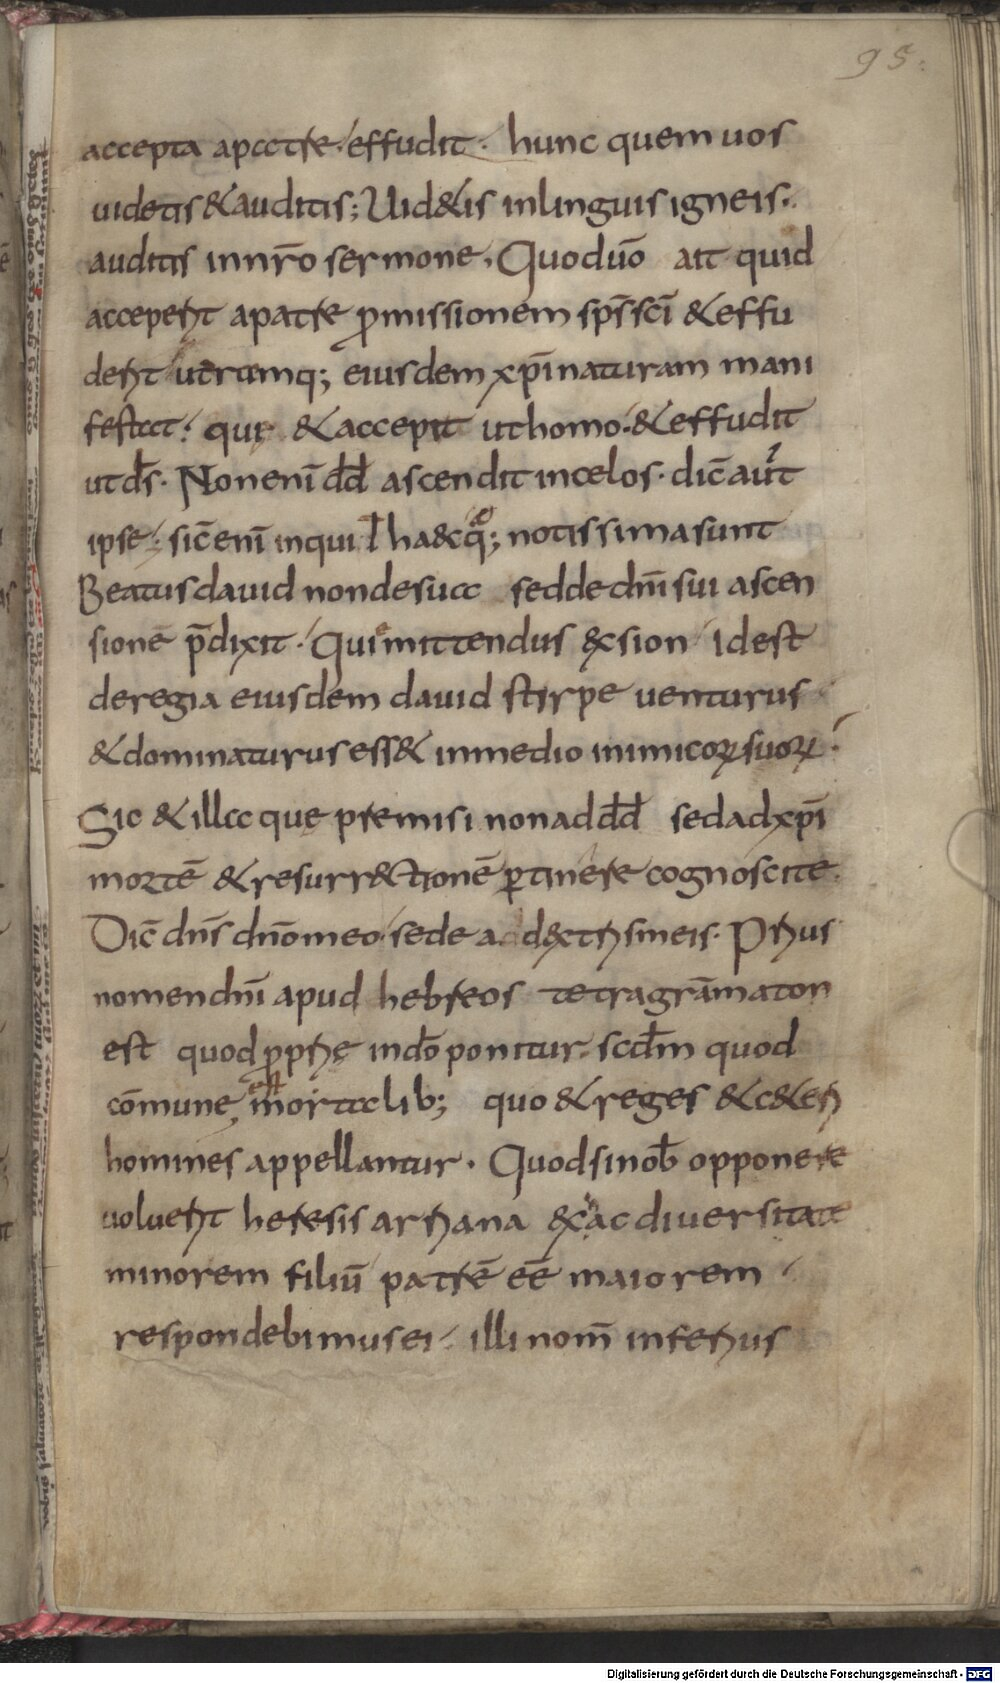 95.
accepta apatre. effudit. hunc quem uos
uidetis & auditis; Uid&is inlinguis igneis.
auditis innr̄o sermone. Quod uō ait quid
acceperit apatre p̄missionem sp̄s sc̄i & effu
derit utrumq; eiusdem xp̄i naturam mani
festat. quę & accepit ut homo. & effudit
ut d̄s. Non enī dd̄ ascendit incelos. dic̄ aut̄
ipse. sic̄ enī inqui t hacq̄; notissima sunt
Beatus dauid nondesua sed de dn̄i sui ascen
sione p̄dixit. Qui mittendus &xsion idest
deregia eiusdem dauid stirpe uenturus
& dominaturus ess& inmedio inimicoꝝ suoꝝ.
Sic & illa quę premisi nonad dd̄ sed adxp̄i
mortē & resurr&ctionē ꝑtinere cognoscite.
Dic̄ dn̄s dn̄o meo. sede a dextris meis. Prius
nomen dn̄i apud hebreos tetragrāmaton
est quod ꝓprię indō ponitur. scd̄m quod
cōmune est mortalib; quo & reges & c&eri
homines appellantur. Quod sinob̄ opponere
uoluerit heresis arriana &x ac diuersitate
minorem filiū patrē eē maiorem
respondebimus ei. illi nom̄ inferius
Digitalisierung gefördert durch die Deutsche Forschungsgemeinschaft - DFG